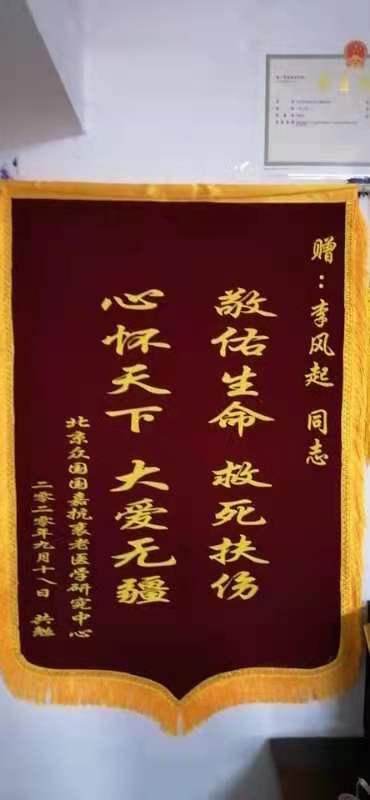 赠：李风起 同志
敬佑生命 救死扶伤
心怀天下 大爱无疆
北京众国国嘉抗衰老医学研究中心
二零二零年九月十八日 共勉